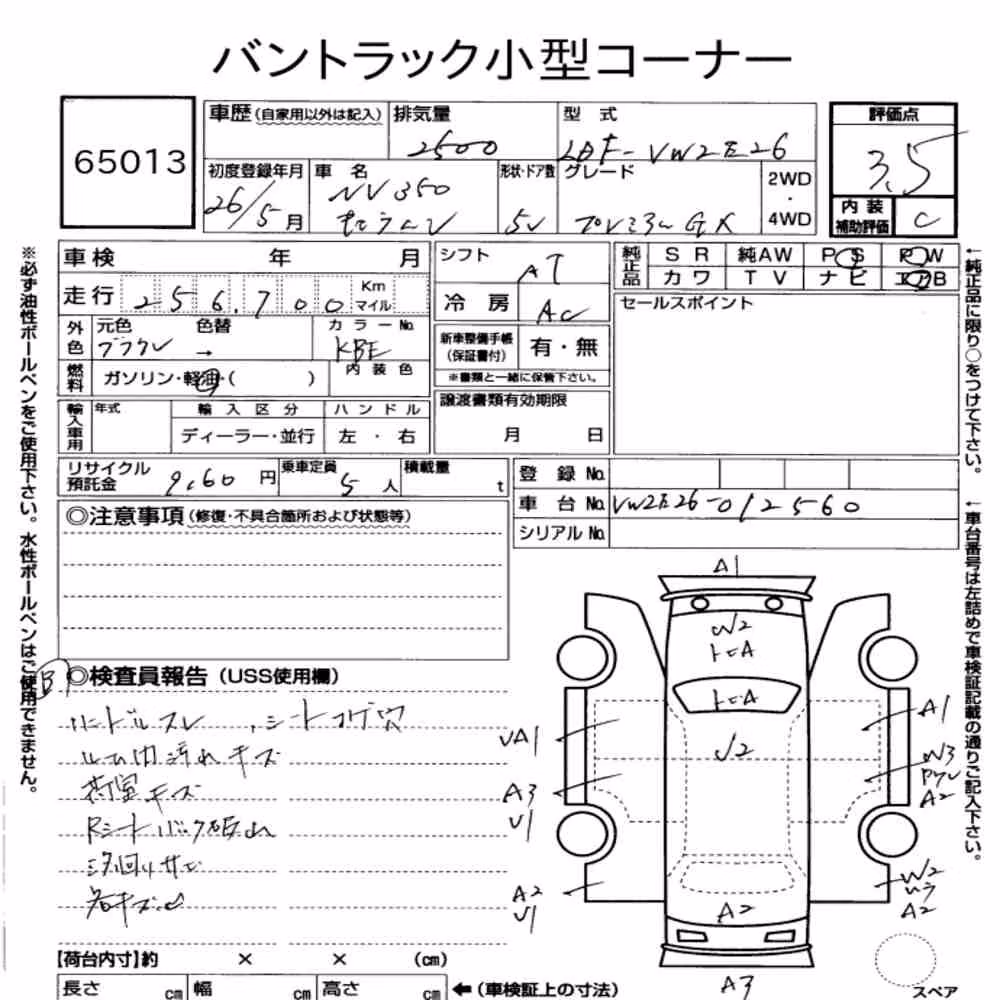 バントラック小型コーナー
65013
車歴(自家用以外は記入)
排気量
2500
型 式
LDF-VW2E26
評価点
3.5
初度登録年月
26/5月
車 名
NV350
キャラバン
形状・ドア数
5V
グレード
プレミアム GX
2WD
・
4WD
内 装
補助評価
C
車検 年 月
走行 256,700 Km マイル
外色
元色 色替
ブラウン →
カラーNo.
KBE
燃料
ガソリン・軽油・( )
内装色
輸入車用
年式
輸入区分
ディーラー・並行
ハンドル
左・右
シフト
AT
冷房
AC
新車整備手帳
(保証書付)
有・無
※書類と一緒に保管下さい。
譲渡書類有効期限
月 日
純正品
SR 純AW PS PW
カワ TV ナビ エアB
セールスポイント
リサイクル
預託金
9,60 円
乗車定員
5人
積載量
t
登録No.
車台No. VW2E26-012560
シリアルNo.
◎注意事項(修復・不具合箇所および状態等)
◎検査員報告(USS使用欄)
ハンドルスレ シートコゲ穴
ルーム内汚れキズ
荷室キズ
下廻りサビ
A1
W2
トビA
トビA
√2
UA1
A3
U1
A2
U1
A1
W3
A2
W2
A2
A2
A3
【荷台内寸】約 × × (cm)
長さ cm 幅 cm 高さ cm ←(車検証上の寸法)
スペア
※必ず油性ボールペンをご使用下さい。水性ボールペンはご使用できません。
←純正品に限り○をつけて下さい。
←車台番号は左詰めで車検証記載の通りご記入下さい。